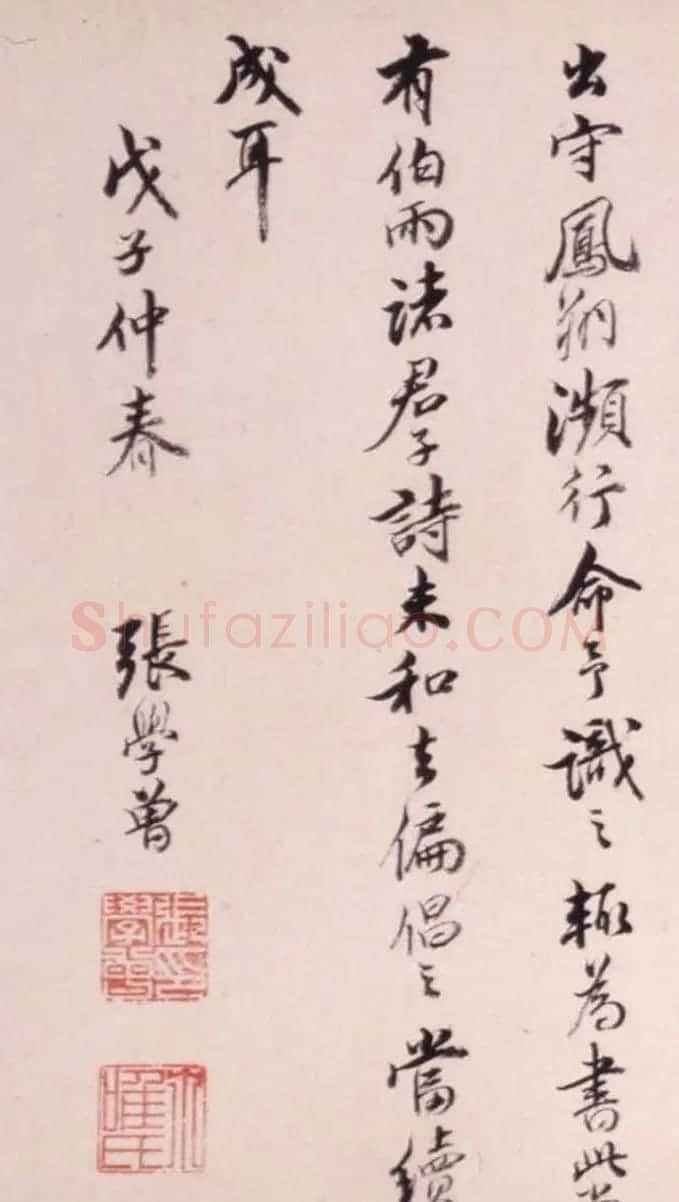 出守鳳翔瀕行命予識之輒為書此
有伯雨諸君子詩未和去偏倡之當續
成耳
戊子仲春 張學曾
Shufaziliao.COM